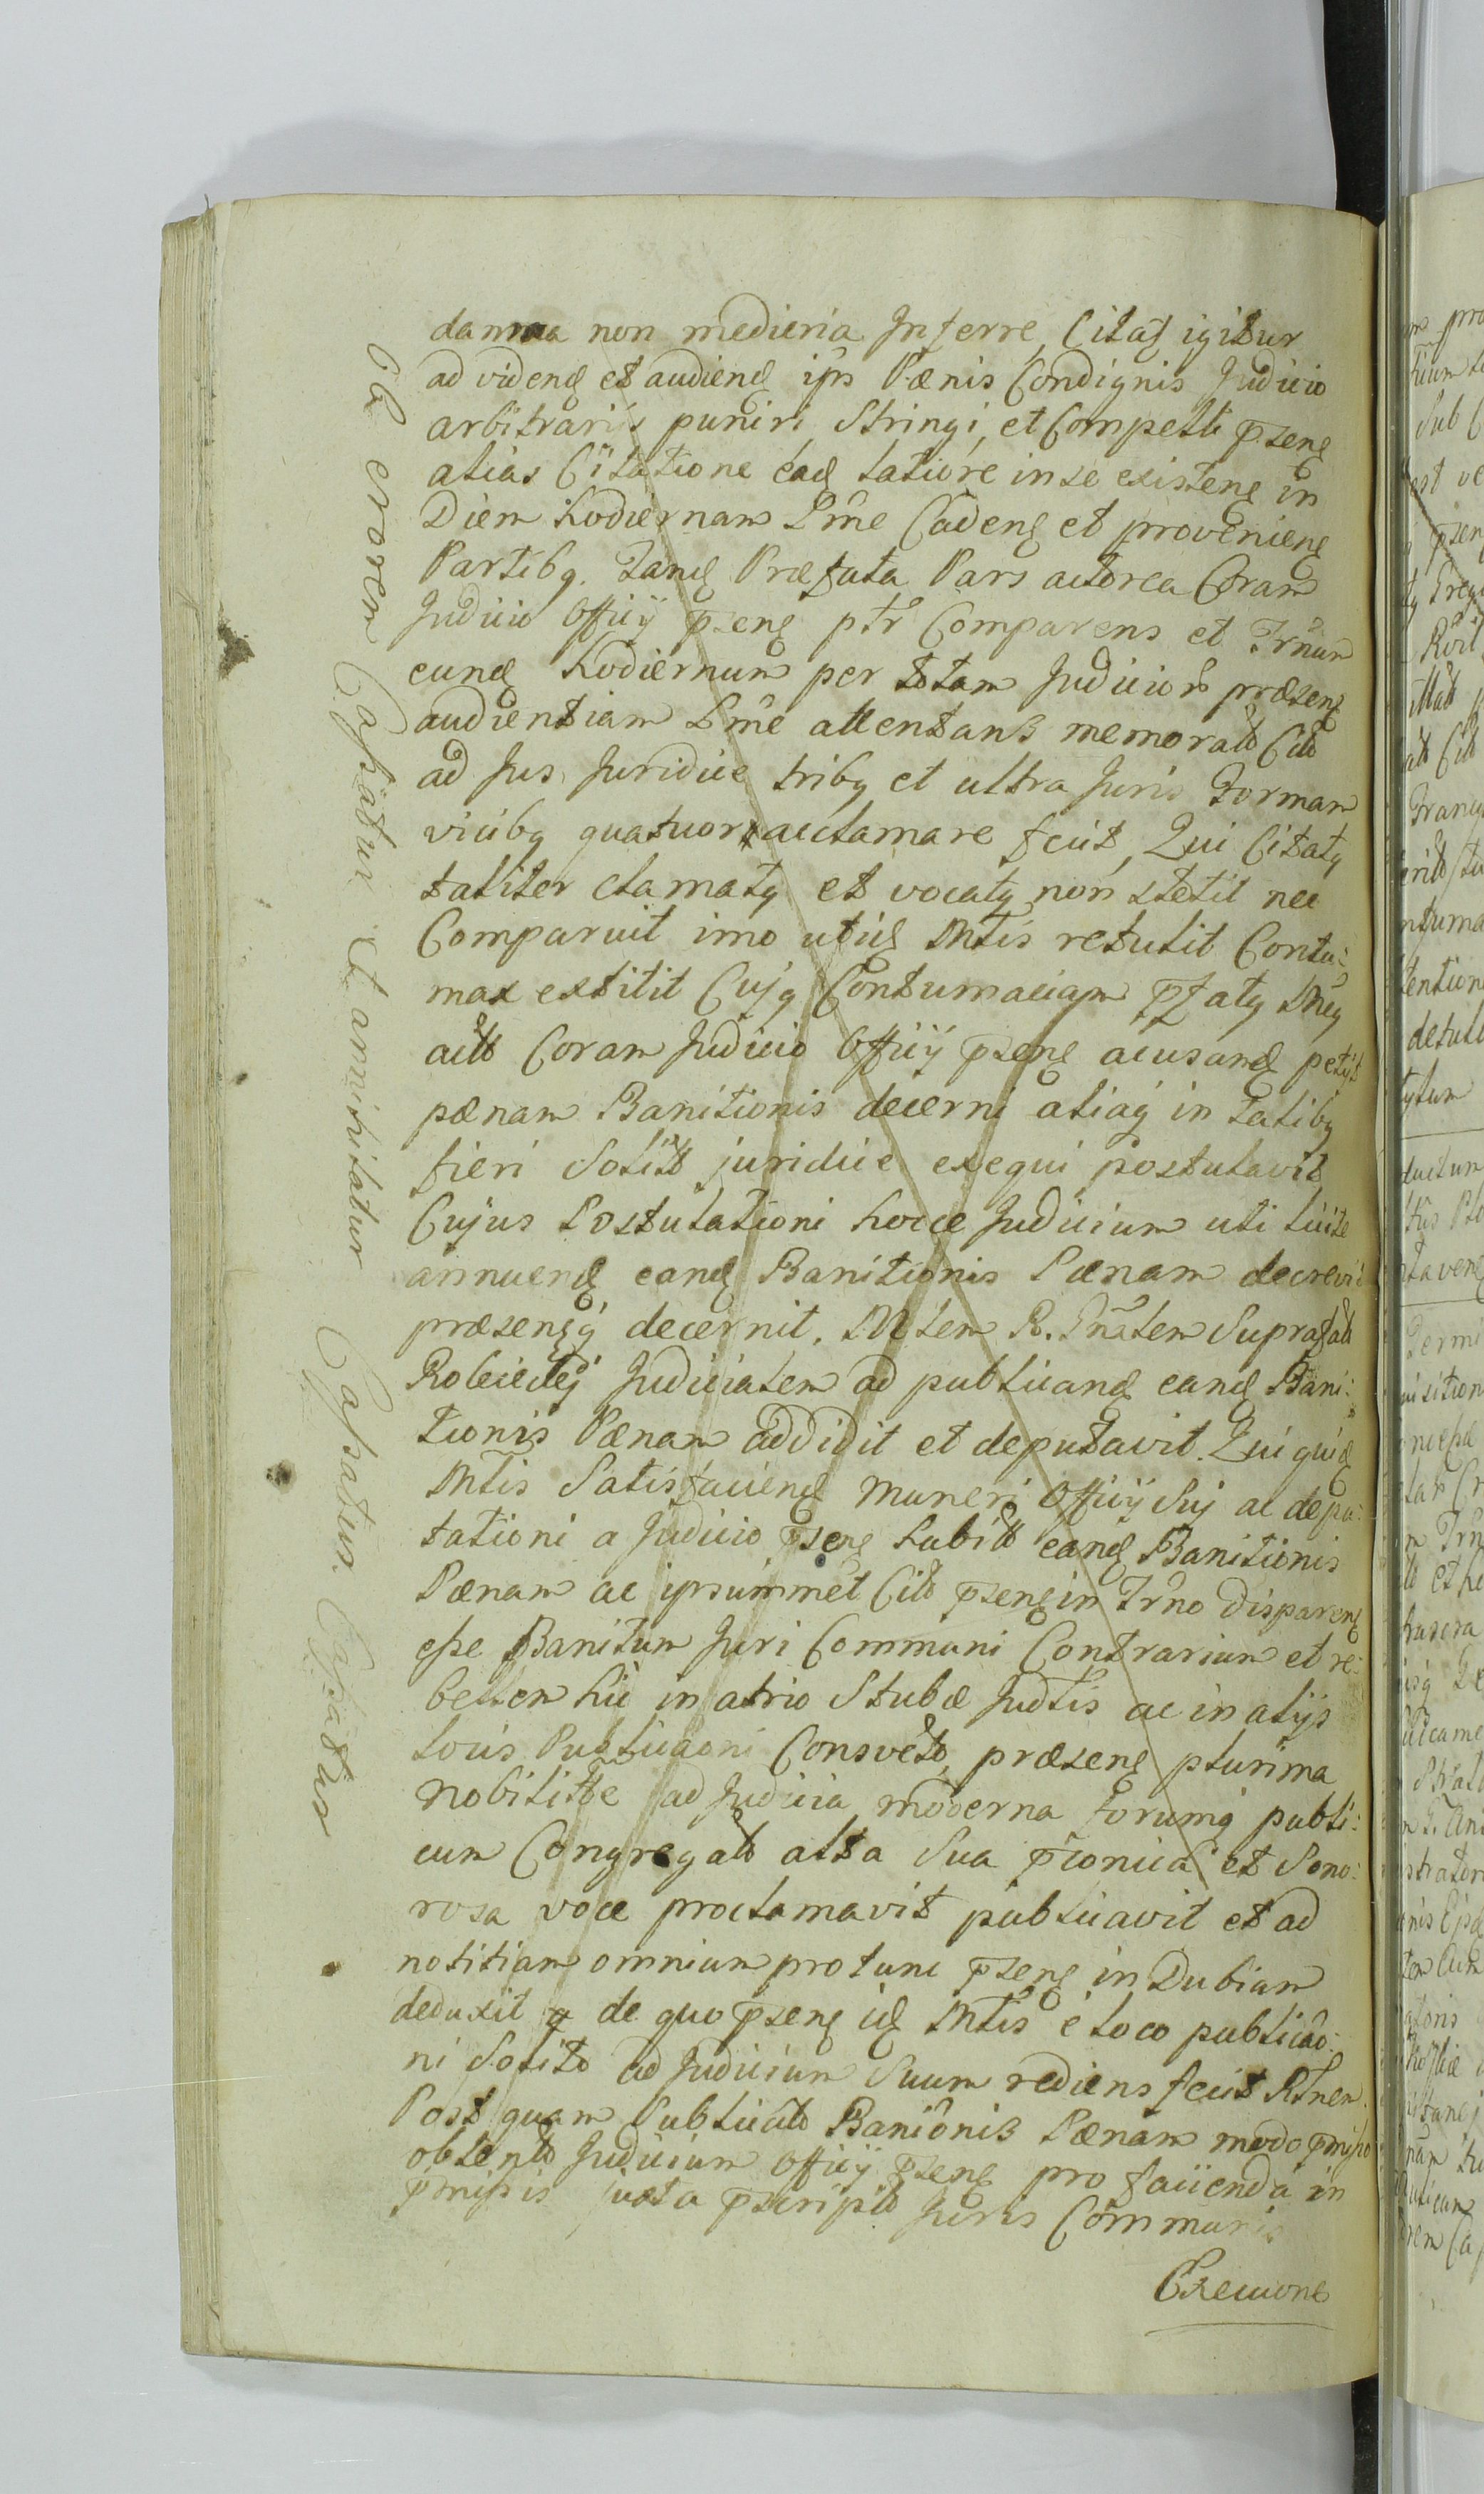 damna non mediocria Inferre, Citat igitur
ad videnđ et audienđ ips Pænis Condignis Judicio
arbitrarijs puniri, Stringi, et Compelli pseng
alias Citatione eađ latiore in se existeng in
Diem hodiernam Lime Cadeng et provenieng
Partibq. Tanđ Præfata Pars actorea Coram
Judicio Officij pseng ptr Comparens et Trnum
eunđ hodiernum per totam Judicior præseng
audientiam Lime attentans memorato Cito
ad Jus Juridice tribq et ultra Juris Formam
vicibq quatuor acclamare fecit, Qui Citatq
taliter clamatq et vocatq non stetit nec
Comparuit imo utiđ Mtis retulit Contu:
max extitit Cujq Contumaciam pfatq
acto Coram Judicio Officij pseng acusanđ petijt
pænam Banitionis decerni aliaq in talibq
fieri Solito juridice exequi postulavit
Cujus Postulationi hocce Judicium uti licite
annuenđ eanđ Banitionis Pænam decrevit
præsengq decernit. Mtem R. Gnalem Suprafato
Judicialem ad publicanđ eanđ Bani:
tionis Pænam addidit et deputavit. Qui quiđ
Mtis Satisfacienđ Muneri Officij Suj ac depu:
tationi a Judicio pseng habito eanđ Banitionis
Pænam ac ipsummet Cito pseng in Trno dispareng
esse Banitum Juri Communi Contrarium et re:
bellem hic in atrio Stubæ Judlis ac in alijs
locis Publicaoni Consveto, præseng plurima
Nobilitte ad Judicia moderna Forumq publi:
cum Congregato alta Sua pconica et Sono:
rosa voce proclamavit publicavit et ad
notitiam omnium protunc pseng in Dubiam
deduxit de quo pseng iđ Mtis e loco publicao:
ni Solito ad Judicium Suum rediens fecit Rlnem.
Post quam Publicato Banionis Pænam modo pmisso
obtento Judicium Officij pseng pro facienda in
pmissis juxta pscripto Juris Communis
Exeuone
Ob erorem Cassatur et amihilatur Cassatur Cassatur